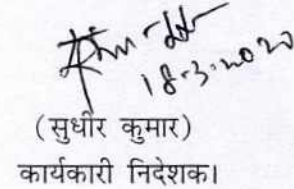 18-3-2020
(सुधीर कुमार)
कार्यकारी निदेशक।